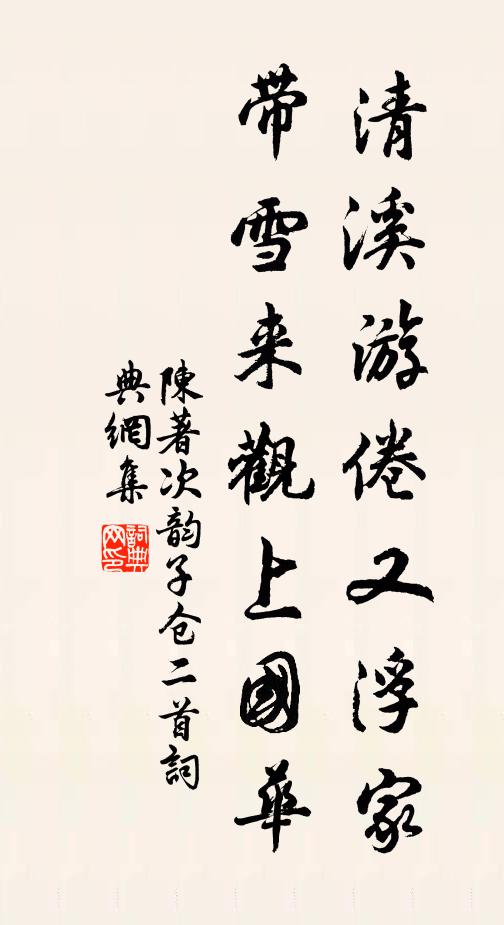 清溪游倦又浮家
带雪来觀上國華
陳著次韵子仓二首詞
典網集
詞典
网印